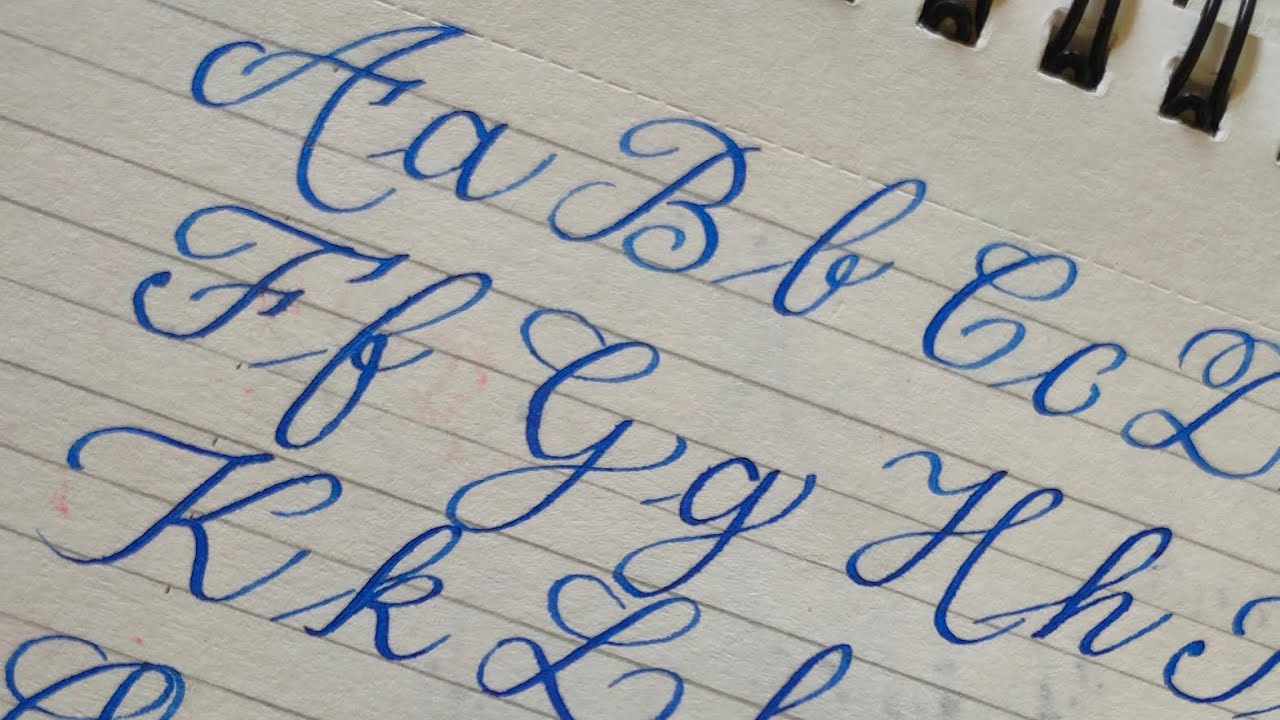 Aa Bb Cc D
Ff Gg Hh
Kk Ll